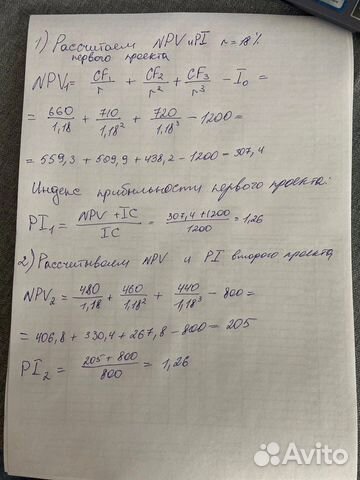 1) Рассчитаем NPV и PI r = 18%
первого проекта
NPV₁ = CF₁/r + CF₂/r² + CF₃/r³ - I₀ =
= 660/1,18 + 710/1,18² + 720/1,18³ - 1200 =
= 559,3 + 509,9 + 438,2 - 1200 = 307,4
Индекс прибыльности первого проекта:
PI₁ = NPV + IC/IC = 307,4 + 1200/1200 = 1,26
2) Рассчитываем NPV и PI второго проекта
NPV₂ = 480/1,18 + 460/1,18² + 440/1,18³ - 800 =
= 406,8 + 330,4 + 267,8 - 800 = 205
PI₂ = 205 + 800/800 = 1,26
Avito